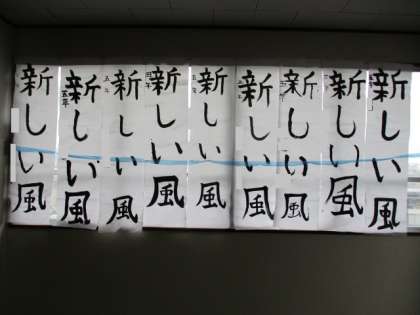 新しい風
五年
新しい風
五年
新しい風
新しい風
五年
新しい風
五年
新しい風
新しい風
新しい風
新しい風